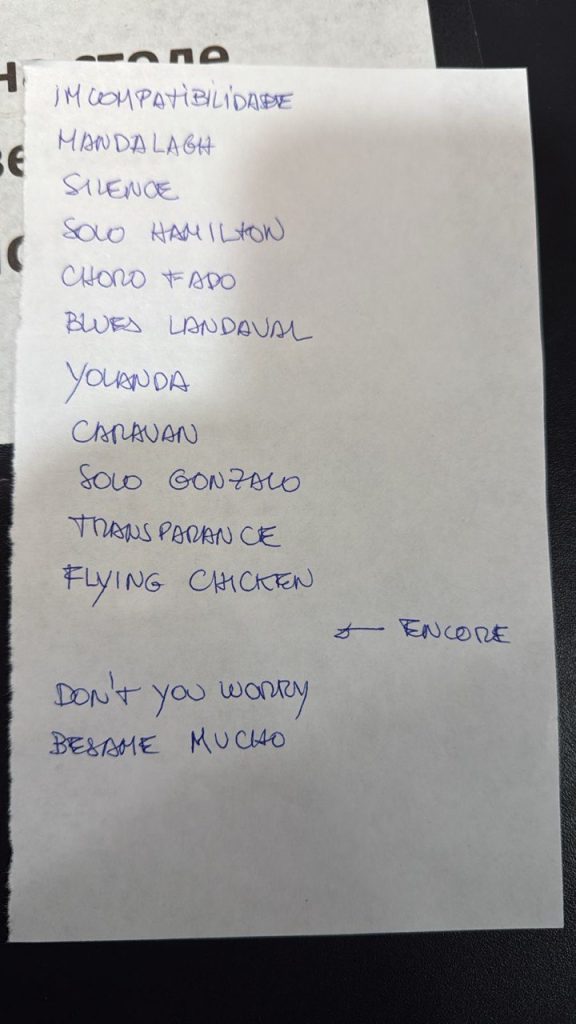 на столе
IMCOMPATIBILIDADE
MANDALAGH
SILENCE
SOLO HAMILTON
CHORO FADO
BLUES LANDAVAL
YOLANDA
CARAVAN
SOLO GONZALO
TRANSPARANCE
FLYING CHICKEN
← ENCORE
DON'T YOU WORRY
BESAME MUCHO